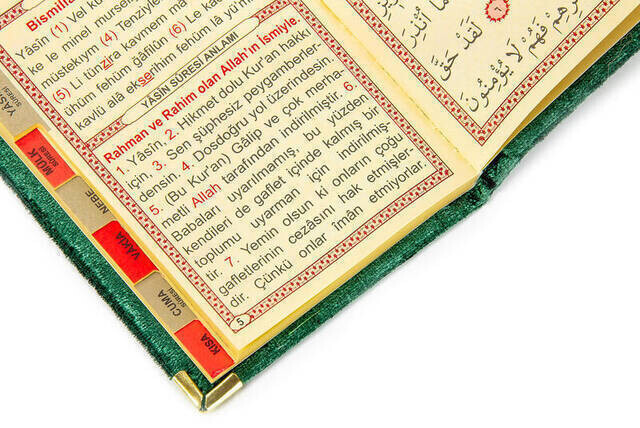 Bismillâ
Yâsîn (1) Vel ku
ke le minel mursel
müstekıym (4) Tenziyle
(5) Li tünzira kavmem mâ
ühüm fehüm ğâfilûn (6) Le ka
kavlü alâ ekserihim fehüm lâ yü'mi
YÂSÎN SÛRESİ ANLAMI
Rahman ve Rahim olan Allah'ın ismiyle.
1. Yâsîn, 2. Hikmet dolu Kur'an hakkı
için, 3. Sen şüphesiz peygamberler-
densin. 4. Dosdoğru yol üzerindesin.
5. (Bu Kur'an) Gâlip ve çok merha-
metli Allah tarafından indirilmiştir. 6.
Babaları uyarılmamış, bu yüzden
kendileri de gaflet içinde kalmış bir
toplumu uyarman için indirilmiş-
tir. 7. Yemin olsun ki onların çoğu
gafletlerinin cezâsını hak etmişler-
dir. Çünkü onlar îmân etmiyorlar.
5
YÂSÎN
SÛRESİ
MÜLK
SÛRESİ
NEBE
VÂKIA
CUMA
SÛRESİ
KISA
لَقَدْ حَقَّ
فَهُمْ لَا يُؤْمِنُونَ